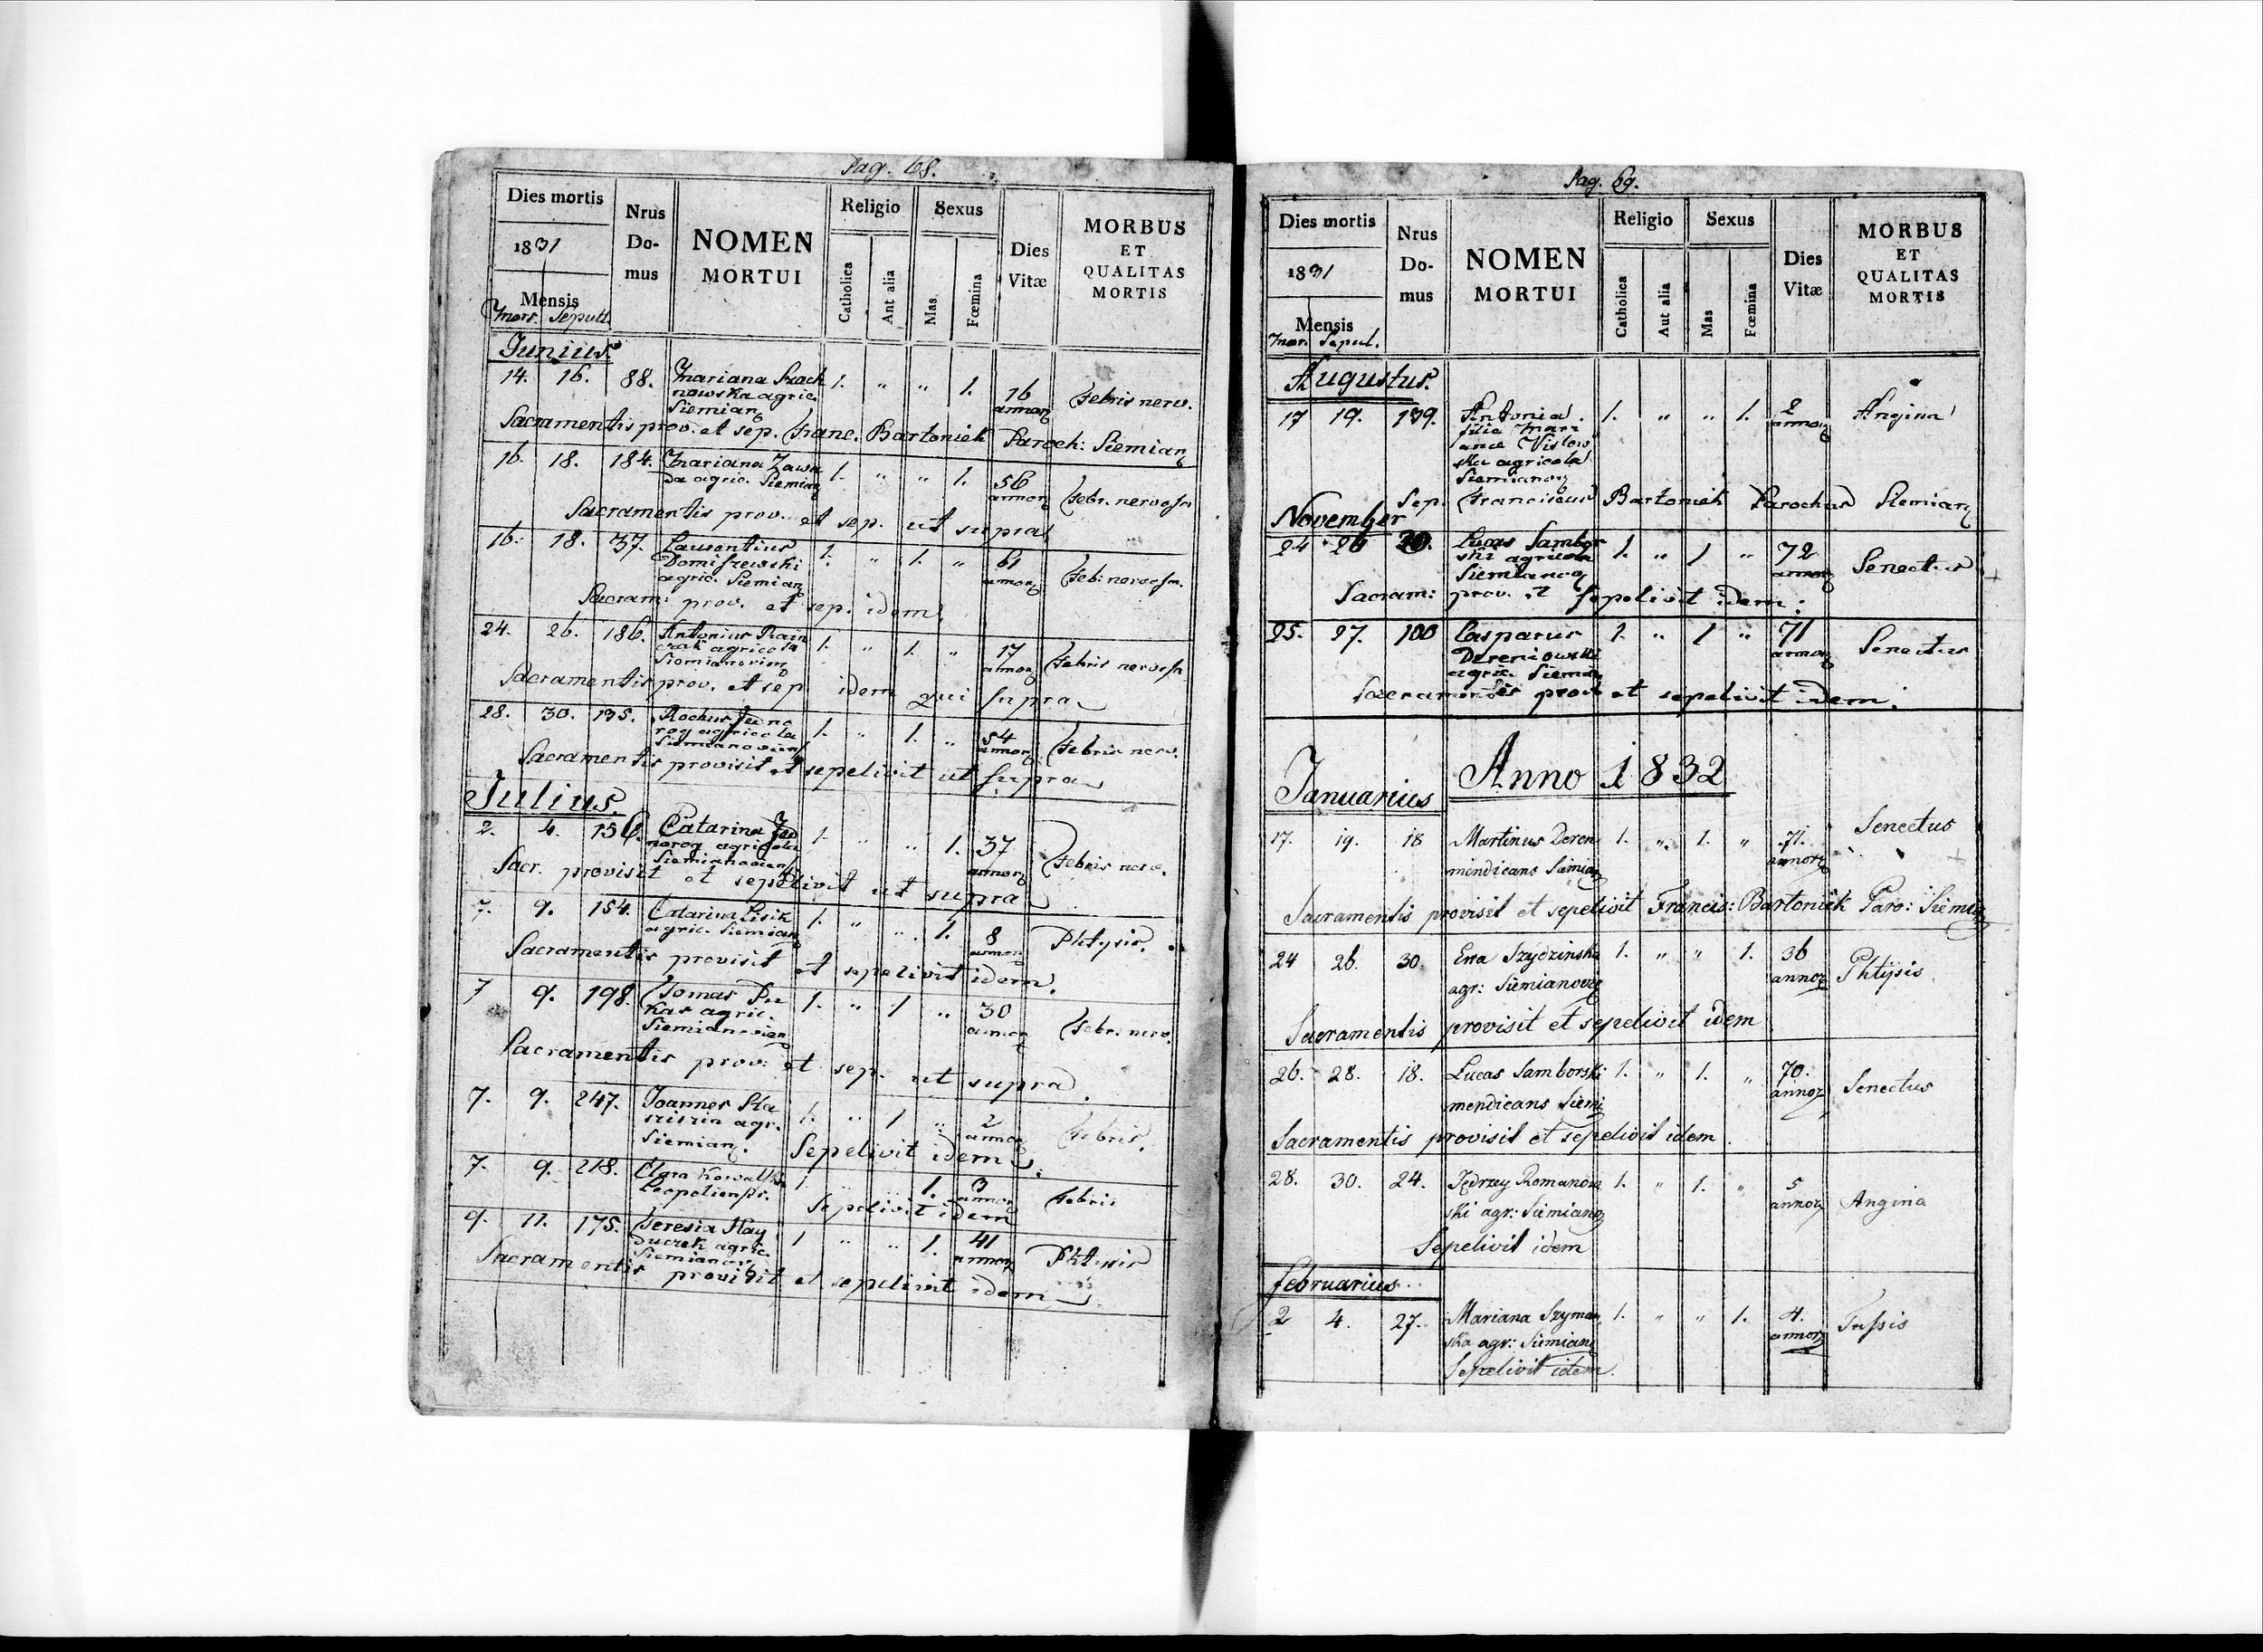 Pag. 68.
Dies mortis
1831
Mensis
Mors. Sepult.
Nrus
Do-
mus
NOMEN
MORTUI
Religio
Catholica
Ant alia
Sexus
Mas
Fœmina
Dies
Vitæ
MORBUS
ET
QUALITAS
MORTIS
Junius.
14. 16. 88. Mariana Szach 1. " " 1. 16 Febris nerv.
nowska agric. annor
Siemian
Sacramentis prov. et sep. Franc. Bartoniek Paroch: Siemian
16. 18. 184. Mariana Zawa 1. " " 1. 56 Febr. nervosa
da agric. Siemian annor
Sacramentis prov. et sep. ut supra
16. 18. 37. Laurentius 1. " 1. " 61 Feb: nervosa.
Domiszewski annor
agric. Siemian
Sacram: prov. et sep. idem
24. 26. 186. Antonius Rain 1. " 1. " 17 Febris nervosa
czak agricola annor
Siemianovien
Sacramentis prov. et sep. idem qui supra
28. 30. 135. Rochus Jedno 1. " 1. " 54 Febris nerv.
rog agricola annor
Siemianovien
Sacramentis provisit et sepelivit ut supra
Julius.
2. 4. 156. Catarina Jed 1. " " 1. 37 Febris nerv.
norog agricola annor
Siemianovien
Sacr. provisit et sepelivit ut supra
7. 9. 154. Catarina Lisik 1. " " 1. 8 Phtysis.
agric. Siemian annor
Sacramentis provisit et sepelivit idem.
7 9. 198. Tomas Pu 1. " 1 " 30 Febr. nerv.
kas agric. annor
Siemianovien
Sacramentis prov: et sep. ut supra.
7. 9. 247. Joannes 1. " 1 " 2 Febris.
agr. annor
Siemian. Sepelivit idem
7. 9. 218. Clara Kowalska 1. " " 1. 3 Febris
Leopoliensis. annor
Sepelivit idem
9. 11. 175. Teresia Hay 1 " " 1. 41 Phtysis
duczek agric. annor
Siemianov.
Sacramentis provisit et sepelivit idem
Pag. 69.
Dies mortis
1831
Mensis
Mor. Sepul.
Nrus
Do-
mus
NOMEN
MORTUI
Religio
Catholica
Aut alia
Sexus
Mas
Fœmina
Dies
Vitæ
MORBUS
ET
QUALITAS
MORTIS
Augustus.
17 19. 139. Antonia 1. " " 1. 2 Angina
filia Mari annor
anae Vislow
ska agricola
Siemianov
Sep. Franciscus Bartoniek Parochus Siemian
November
24 26 30. Lucas Sambor 1. " 1 " 72 Senectus
ski agricola annor
Siemianov
Sacram: prov. et sepelivit idem.
25. 27. 100 Casparus 1. " 1 " 71 Senectus
Dereniowski annor
agric. Siemian
Sacramentis prov. et sepelivit idem.
Anno 1832
Januarius
17. 19. 18 Martinus Deren 1. " 1. " 71. Senectus
mendicans Simian annor
Sacramentis provisit et sepelivit Francis: Bartoniek Paro: Siemian
24 26. 30. Eva Szydzinska 1. " " 1. 36 Phtysis
agr: Siemianov annor
Sacramentis provisit et sepelivit idem
26. 28. 18. Lucas Samborski 1. " 1. " 70. Senectus
mendicans Siemi annor
Sacramentis provisit et sepelivit idem.
28. 30. 24. Jędrzey Romanow 1. " 1. " 5 Angina
ski agr: Siemiano annor
Sepelivit idem
februarius
2 4. 27. Mariana Szyman 1. " " 1. 4. Tussis
ska agr: Siemian annor
Sepelivit idem.